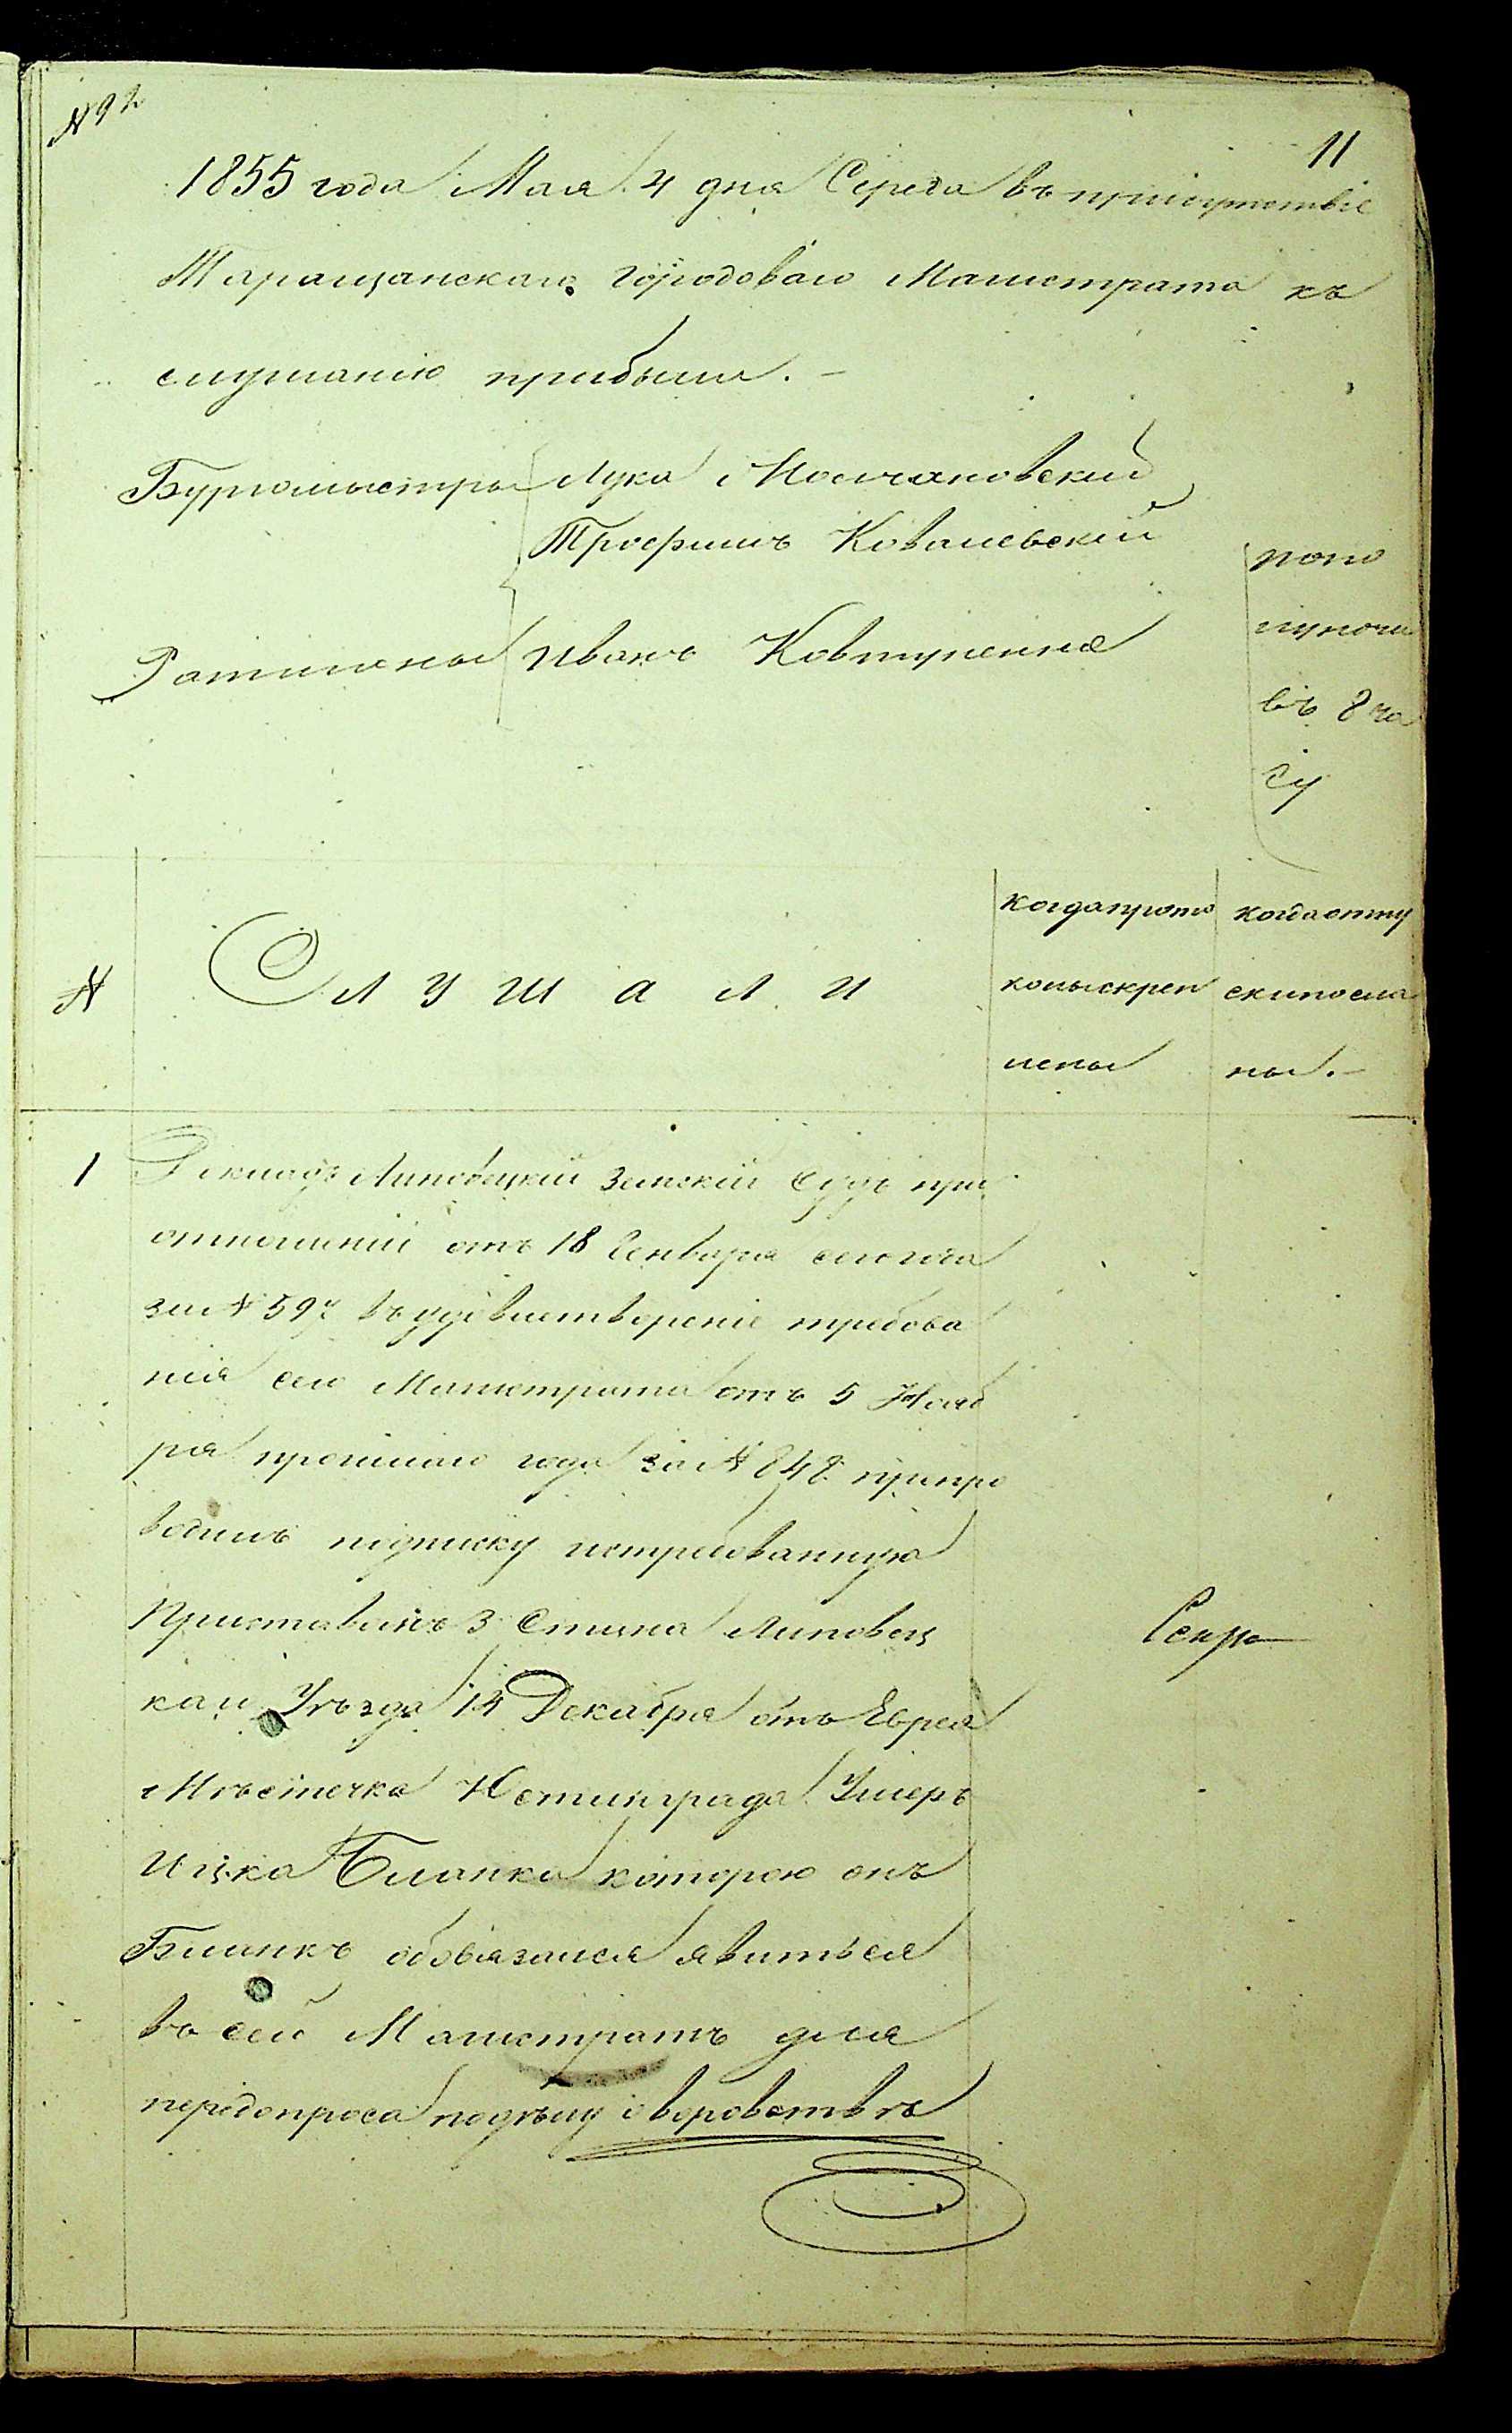 № 92
11
1855 года Мая 4 дня Середа въ присутствіе
Таращанскаго городоваго Магистрата къ
слушанію прибыли. –
Бургомыстры Лука Молчановский
Трофимъ Ковалевскій
Ратманы Иванъ Ковтуненко
попо
луночи
въ 8 ча
су
№
Слушали
когда прото
колы скреп
лены
когда отпу
ски посла
ны. –
1
Докладъ Липовецкій Земскій Судъ при
отношеніи отъ 18 Генваря сего года
за № 597 въ удовлетвореніе требова
нія сего Магистрата отъ 5 Нояб
ря прошлаго года за № 848 препро
водилъ подписку истребованную
Приставомъ 3 Стана Липовец
каго Уѣзда 14 Декабря отъ Еврея
Мѣстечка Юстинграда Ушеръ
Ицка Бланка которою онъ
Бланкъ обовязался явиться
въ сей Магистратъ для
передопроса по дѣлу о воровствѣ
Секре